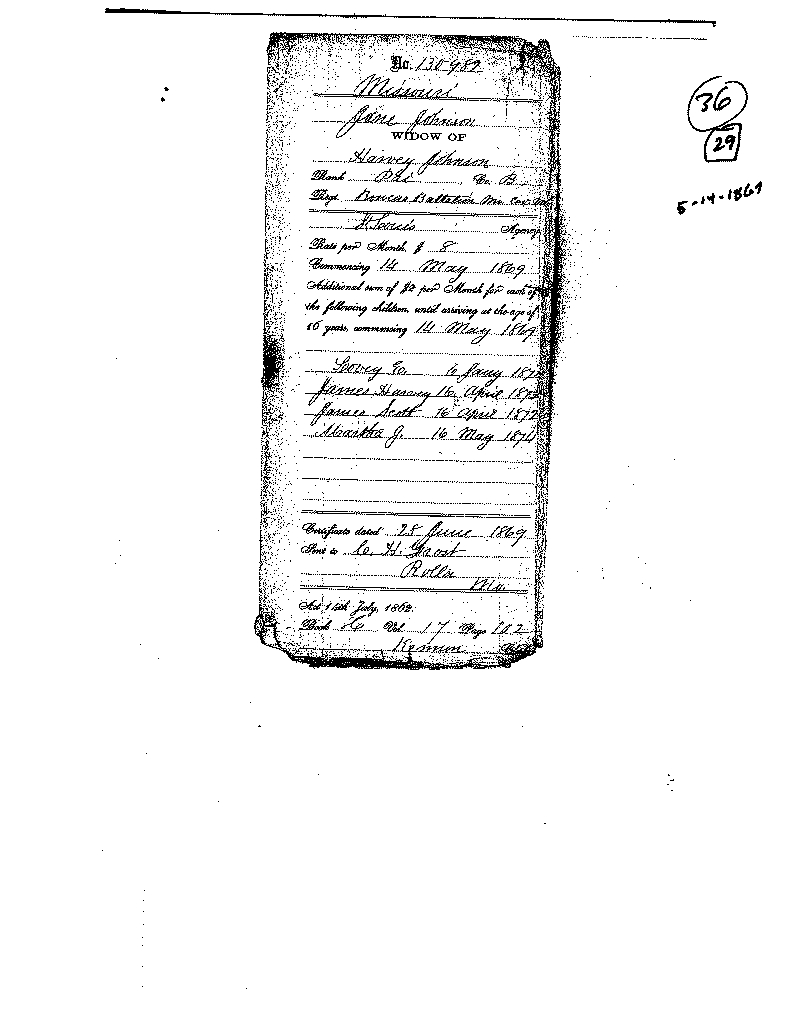 No. 130989
36
Missouri
29
Jane Johnson
WIDOW OF
Harvey Johnson
5-14-1869
Rank Pvt, Co. B
Regt Battalion Mo. Cav.
St. Louis Agency
Rate per Month, $ 8
Commencing 14 May 1869
Additional sum of $2 per Month for each of
the following children, until arriving at the age of
16 years, commencing 14 May 1869
6 Jany
James Harvey 16 April
James Scott 16 April 1872
Martha J. 16 May 1874
Certificate dated 28 June 1869
Sent to C. H. Frost
Rolla
Mo.
Act 14th July, 1862.
Book Vol 17 Page 102